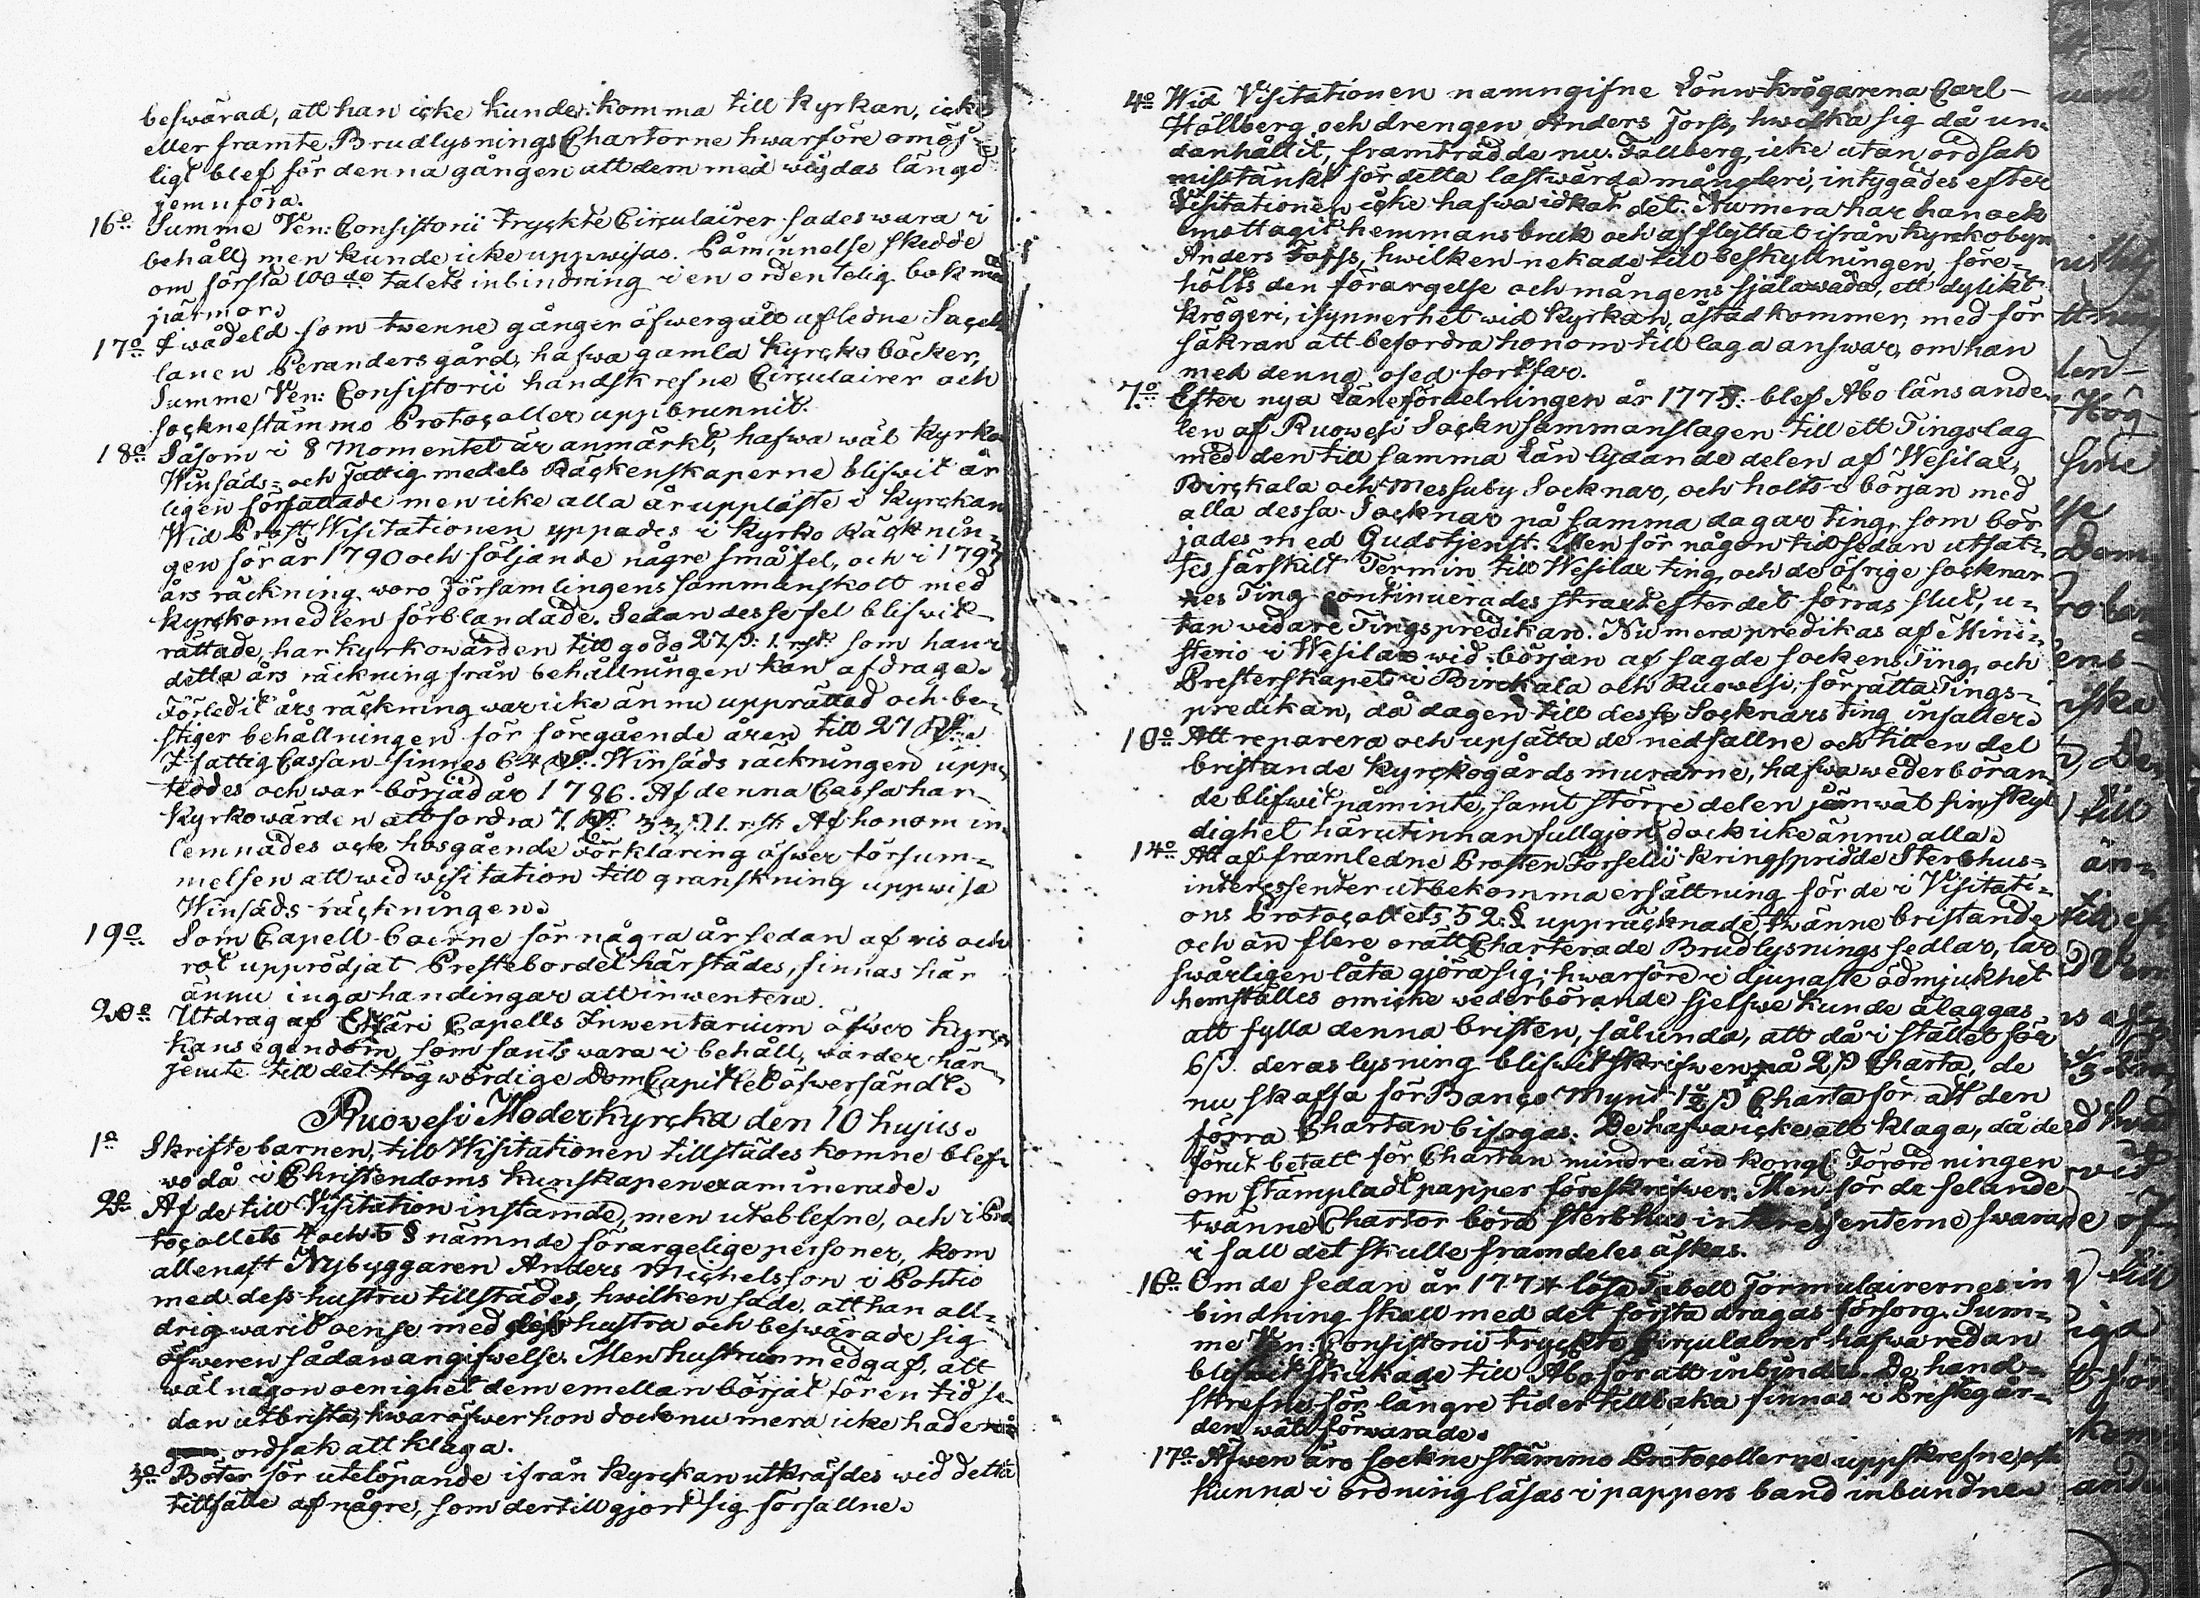 beswärad, att han icke kunde komma till Kyrkan, icke
eller framte Brudlysnings Chartorne hwarföre omöj-
ligt blef för denna gången att dem med wigdas längd
jemnföra.
16o Summe Ven: Consistorii tryckte Circulairer sades wara i
behåll, men kunde icke uppwisas. Påminnelse skedde
om första 100de talets inbindning i en ordentelig bok med
pärmor.
17o I wådeld som twenne gånger öfwergått afledne Sacel-
lanen Peranders gård, hafwa gamla Kyrcko böcker,
Summe Ven: Consistorii handskrefne Circulairer och
Socknestämmo Protocoller uppbrunnit.
18o Såsom i 8 Momentet är anmärkt, hafwa wäl Kyrko
Winsäds- och Fattigmedels Räckenskaperne blifwit år
ligen författade men icke alla år uppläste i Kyrckan
Wid Prost Wisitationen yppades i Kyrko Räcknin-
gen för år 1790 och följande någre små fel, och i 1797
års räckning woro Församlingens sammanskott med
Kyrckomedlen förblandade. Sedan desse fel blifwit
rättade, har Kyrkowärden till godo 27 ß: 1. rst: som han i
detta års räckning från behållningen kan afdraga.
Förledit års räckning war icke ännu upprättad och be-
stiger behållningen för föregående åren till 27 Rd:
I fattig Cassan finnes 64 Rd: Winsäds räckningen upp-
teddes och war börjad år 1786. Af denna Cassa har
Kyrkowärden att fordra 7. Rd: 33 ß. 1. rst. Af honom in-
lemnades ock hosgående Förklaring öfwer försum-
melsen att wid wisitation till granskning uppwisa
Winsäds räckningen.
19o Som Capell Boerne för några år sedan af ris och
rot upprödjat Prestebordet härstädes, finnas här
ännu inga handingar att inwentera.
20o Utdrag af Capells Inwentarium öfwer Kyrc-
kans egendom, som fants wara i behåll, warder här
jemte till det Högwördige DomCapitlet öfwersändt.
Ruovesi Moderkyrcka den 10 hujus.
1o Skriftebarnen, till Wisitationen tillstädes komne blef-
wo då i Christendoms kunskapen examinerade.
2o Af de till Visitation instämde, men uteblefne, och i Pro
tocollets 4 och 5 § nämnde förargelige personer, kom
allenast Nybyggaren Anders Michelsson i Pohtio
med dess hustru tillstädes, hwilken sade, att han all-
drig warit oense med dess hustra och beswärade sig
öfweren sådan angifwelse. Men hustrun medgaf, att
wäl någon oenighet dem emellan börjat för en tid se-
dan utbrista, hwaröfwer hon dock nu mera icke hade nå
gon ordsak att klaga.
3o Böter för utelöpande ifrån Kyrckan utkräfdes wid detta
tillfälle af någre, som dertill gjort sig förfallne.
4o Wid Visitationen namngifne Lönn-Krögarena Carl
Hällberg och drengen Anders Forss, hwilka sig då un-
danhållit, framträdde nu. Fallberg, icke utan ordsak
misstänkt för detta lastwärda mångleri, intygades efter
Visitationen icke hafwa idkat det. Numera har han ock
mottagit hemmansbruk och afflyttat ifrån Kyrckobyn
Anders Forss, hwilken nekade till beskyllningen, före-
hölts den förargelse och mångens själawåda, ett dylikt
Krögeri, i synnerhet wid Kyrkan, åstadkommer, med för
säkran att befordra honom till laga answar, om han
med denna osed fortfar.
7o Efter nya Länefördelningen år 1775. blef Åbo läns ande-
len af Ruowesi Sockn sammanslagen till ett Tingslag
med den till samma Län lydande delen af Wesilax,
Birckala och Messuby Socknar, och holts i början med
alla dessa Socknar på samma dagar ting, som bör
jades med Gudstjenst. Men för någon tid sedan utsat-
tes särskilt Termin till Wesilax ting, och de öfrige socknar
nes Ting continuerades straxt efter det förras slut, u-
tan widare Tingspredikan. Numera predikas af Mini-
sterio i Wesilax wid början af sagde sockens Ting, och
Presterskapet i Birckala och Ruowesi, förrätta Tings-
predikan, då dagen till desse Socknars ting infaller.
10o Att reparera och upsätta de nedfallne och till en del
bristande Kyrckogårds murarne, hafwa wederböran-
de blifwit påminte, samt större delen jämwäl sin skyl
dighet härutinnan fullgjort, dock icke ännu alla.
14o Att af framledne Prosten Forselii kringspridde Sterbhus-
interessenter utbekomma ersättning för de i Visitati-
ons Protocollets 52 § uppräcknade, twänne bristande
och än flere orätt Charterade Brudlysnings sedlar, lär
swårligen låta gjöra sig; hwarföre i djupaste ödmjukhet
hemställes om icke wederbörande sjelfwe kunde åläggas
att fylla denna bristen, sålunda, att då i stället för
6 ß. deras lysning blifwit skrifwen på 2 ß Charta, de
nu skaffa för Banco Mynt 1½ ß Charta för att den
förra Chartan bifogas. De hafwa icke att klaga, då de
förut betalt för Chartan mindre än Kongl: Förordningen
om stämpladt papper föreskrifwer. Men för de felande
twänne Chartor böra sterbhus interessenterne swara
i fall det skulle framdeles äskas.
16o Om de sedan år 1774 lösa Tabell Formulairernes in
bindning skall med det första dragas försorg. Sum-
me Ven: Consistorii tryckte Circulairer hafwa redan
blifwit skickade till Åbo för att inbindas. De hand-
skrefne för längre tider tillbaka finnas i Prestegår-
den wäl förwarade.
17o Äfwen äro Sockne stämmo Protocollerne uppskrefne, och
kunna i ordning läsas i pappers band inbundne.